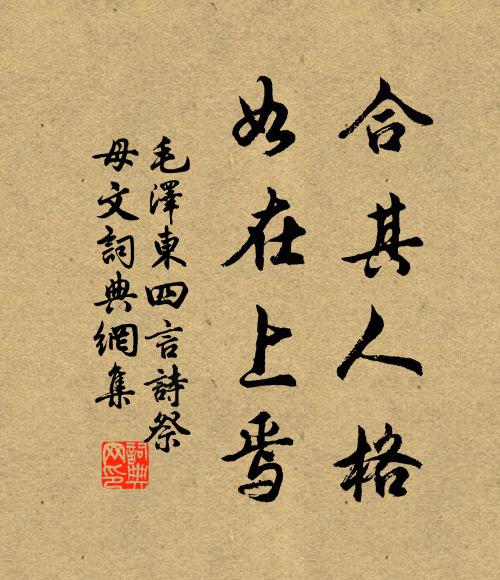 合其人格
如在上焉
毛澤東四言詩祭
母文詞典網集
詞典
网印